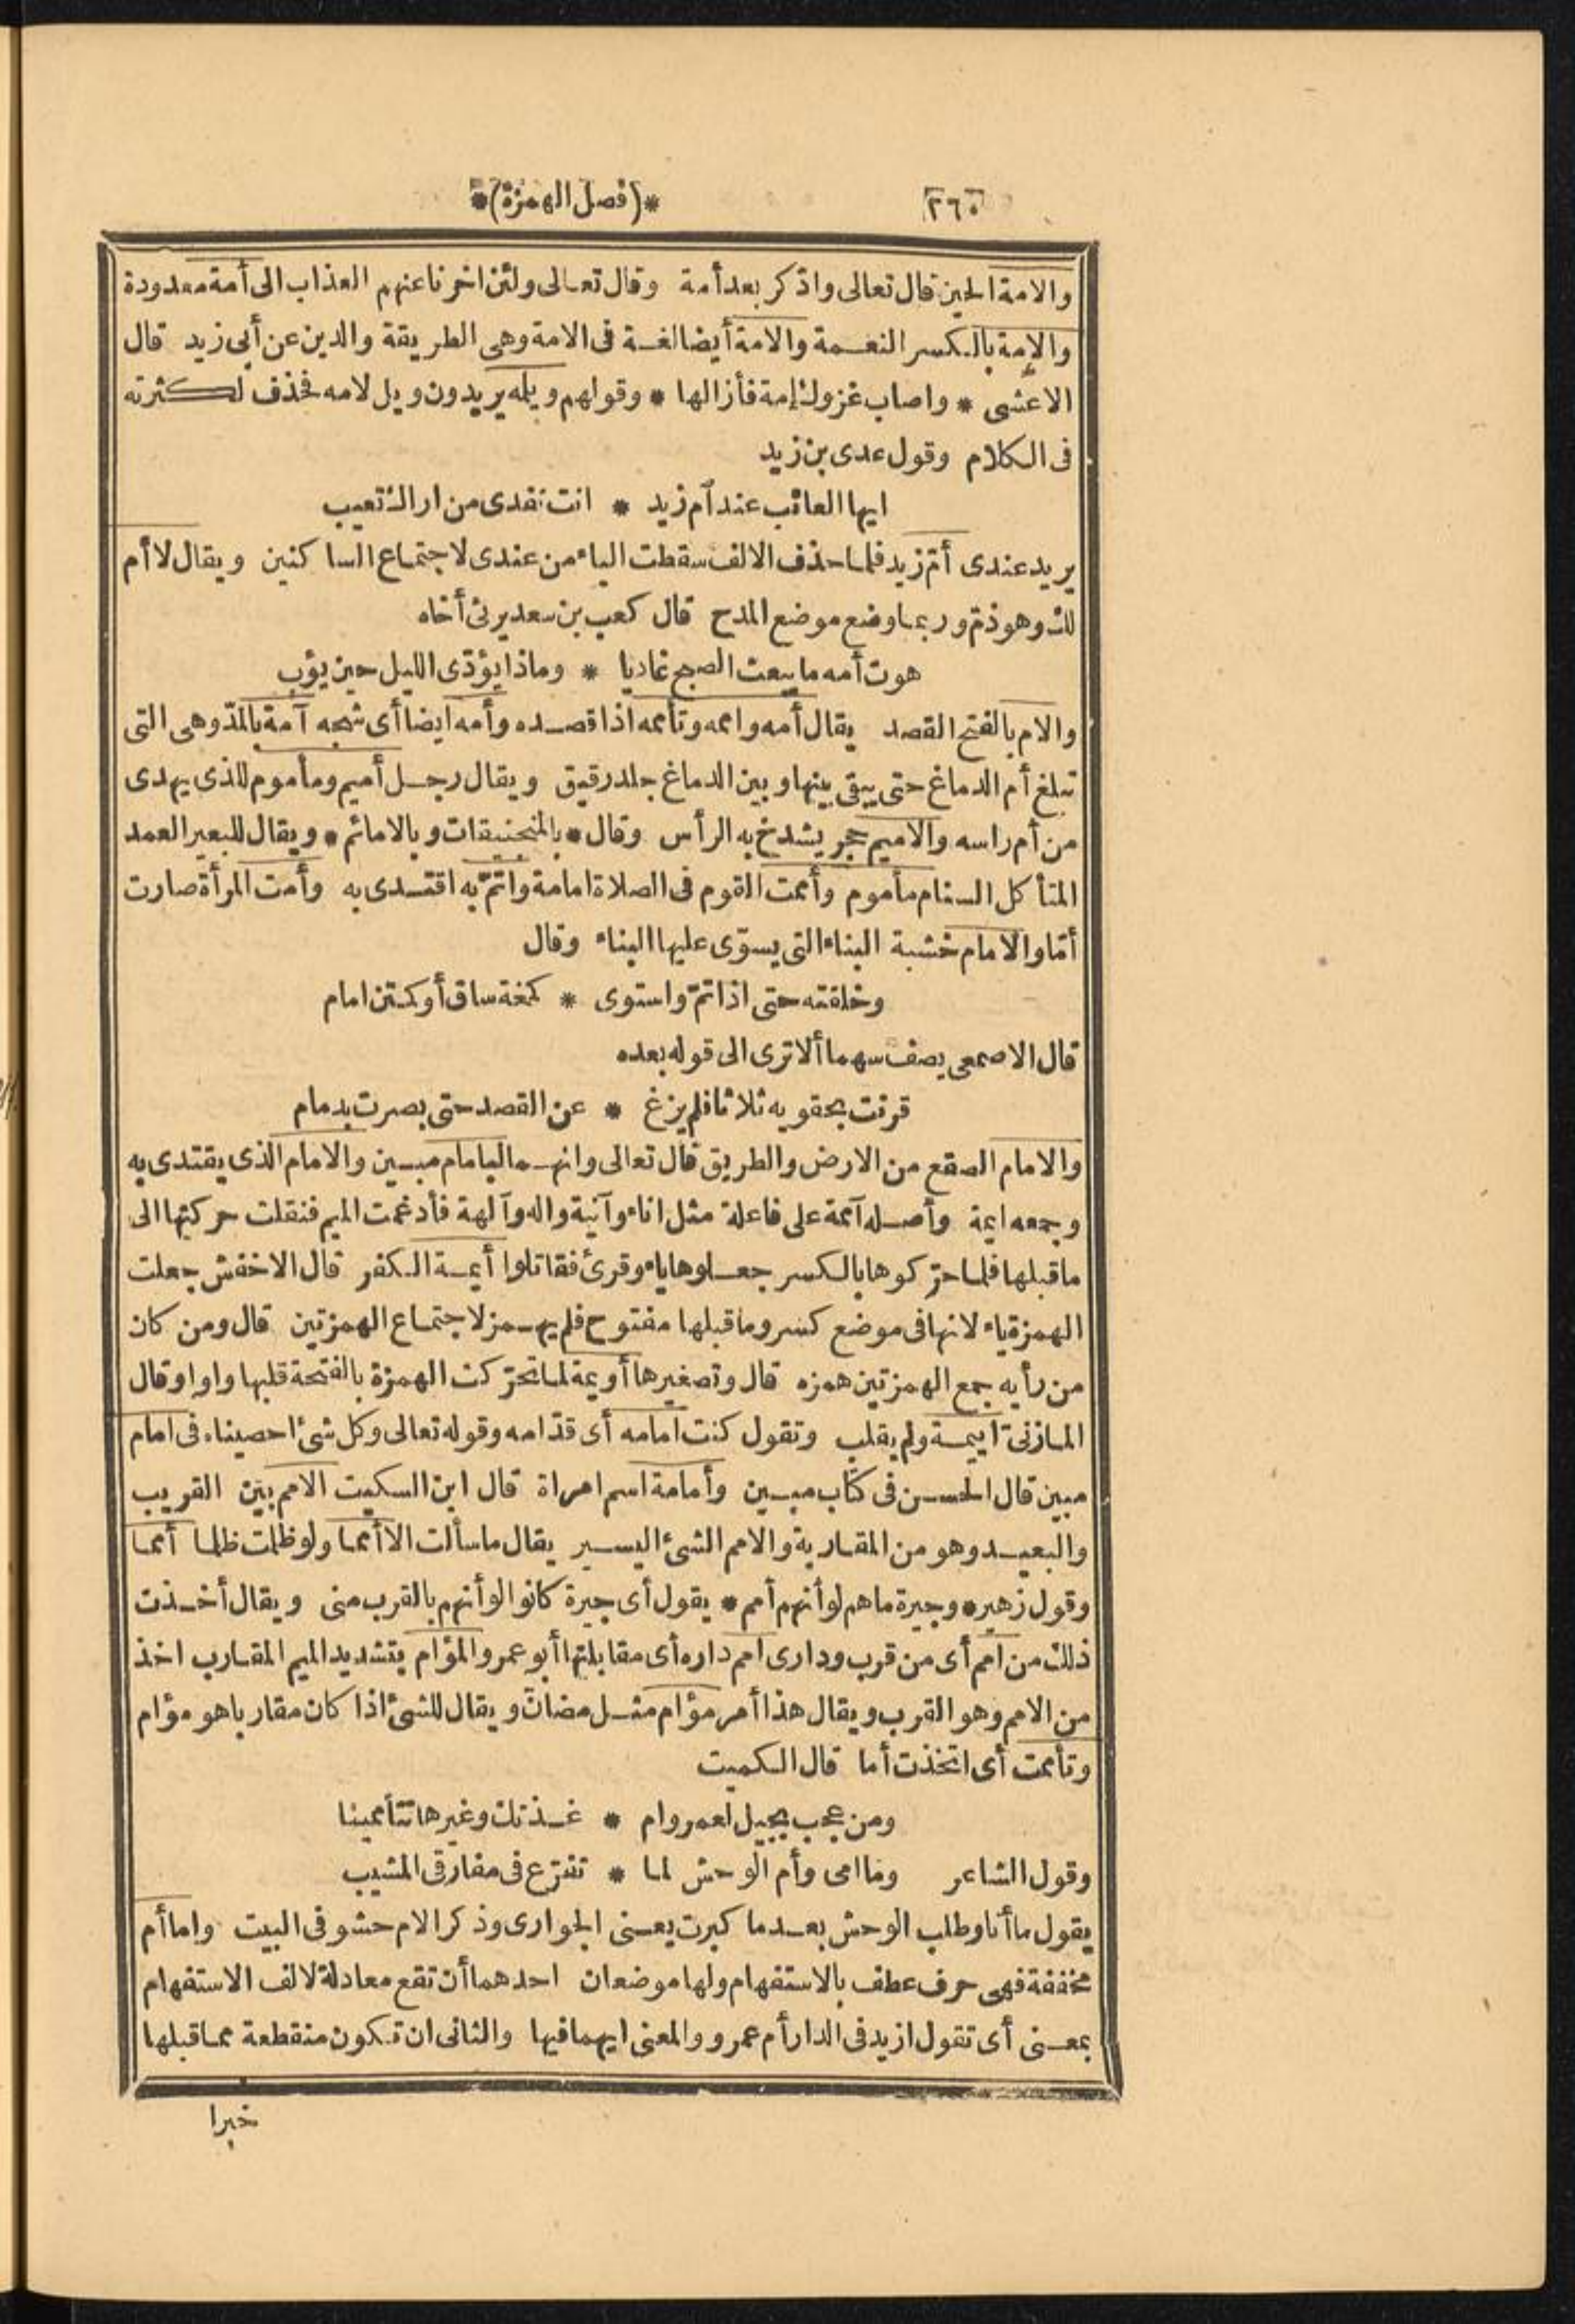 ٢٦٠ *(فصل الهمزة)*
والامة الحين قال تعالى واذكر بعد أمة وقال تعالى ولئن اخرنا عنهم العذاب الى أمة معدودة
والإمة بالكسر النعمة والامة أيضا لغة فى الامة وهى الطريقة والدين عن أبى زيد قال
الاعشى * واصاب غزوك إمة فأزالها * وقولهم ويلمه يريدون ويل لامه فحذف لكثرته
فى الكلام وقول عدى بن زيد
ايها العائب عند أم زيد * انت تفدى من اراك تعيب
يريد عندى أمّ زيد فلما حذف الالف سقطت الياء من عندى لاجتماع الساكنين ويقال لا أم
لك وهو ذمّ وربما وضع موضع المدح قال كعب بن سعد يرثى أخاه
هوت أمه ما يبعث الصبح غاديا * وماذا يؤدّى الليل حين يؤب
والام بالفتح القصد يقال أمه واممه وتأممه اذا قصده وأمه ايضا أى شجه آمة بالمدّ وهى التى
تبلغ أم الدماغ حتى يبقى بينها وبين الدماغ جلد رقيق ويقال رجل أميم ومأموم للذى يهدى
من أم راسه والاميم حجر يشدخ به الرأس وقال * بالمنجنيقات وبالامائم * ويقال للبعير العمد
المتأكل السنام مأموم وأممت القوم فى الصلاة امامة واتمّ به اقتدى به وأمت المرأة صارت
أمّا والامام خشبة البناء التى يسوّى عليها البناء وقال
وخلقته حتى اذا تمّ واستوى * كمخة ساق أو كمتن امام
قال الاصمعى يصف سهما ألا ترى الى قوله بعده
قرنت بحقويه ثلاثا فلم يزغ * عن القصد حتى بصرت بدمام
والامام الصقع من الارض والطريق قال تعالى وانهما لبامام مبين والامام الذى يقتدى به
وجمعه ايمة وأصله آممة على فاعلة مثل اناء وآنية واله وآلهة فأدغمت الميم فنقلت حركتها الى
ما قبلها فلما حرّكوها بالكسر جعلوها ياء وقرئ فقاتلوا أيمة الكفر قال الاخفش جعلت
الهمزة ياء لانها فى موضع كسر وما قبلها مفتوح فلم يهمز لاجتماع الهمزتين قال ومن كان
من رأيه جمع الهمزتين همزه قال وتصغيرها أويمة لما تحرّكت الهمزة بالفتحة قلبها واوا وقال
المازنىّ اييمة ولم يقلب وتقول كنت امامه أى قدّامه وقوله تعالى وكل شئ احصيناه فى امام
مبين قال الحسن فى كتاب مبين وأمامة اسم امراة قال ابن السكيت الامم بين القريب
والبعيد وهو من المقاربة والامم الشئ اليسير يقال ما سألت الا أمما ولو ظلمت ظلما أمما
وقول زهير * وجيرة ما هم لو أنهم أمم * يقول أى جيرة كانوا لو أنهم بالقرب منى ويقال أخذت
ذلك من امم أى من قرب ودارى امم داره أى مقابلتها أبو عمرو المؤامّ بتشديد الميم المقارب اخذ
من الامم وهو القرب ويقال هذا أمر مؤام مثل مضارّ ويقال للشئ اذا كان مقاربا هو مؤام
وتأممت أى اتخذت أما قال الكميت
ومن عجب بجيل لعمر وام * غذتك وغيرها تتأممينا
وقول الشاعر وما امى وأم الوحش لما * تفرّع فى مفارقى المشيب
يقول ما أنا وطلب الوحش بعدما كبرت يعنى الجوارى وذكر الام حشو فى البيت واما أم
مخففة فهى حرف عطف بالاستفهام ولها موضعان احدهما أن تقع معادلة لالف الاستفهام
بمعنى أى تقول ازيد فى الدار أم عمرو والمعنى ايهما فيها والثانى ان تكون منقطعة مما قبلها
خبرا